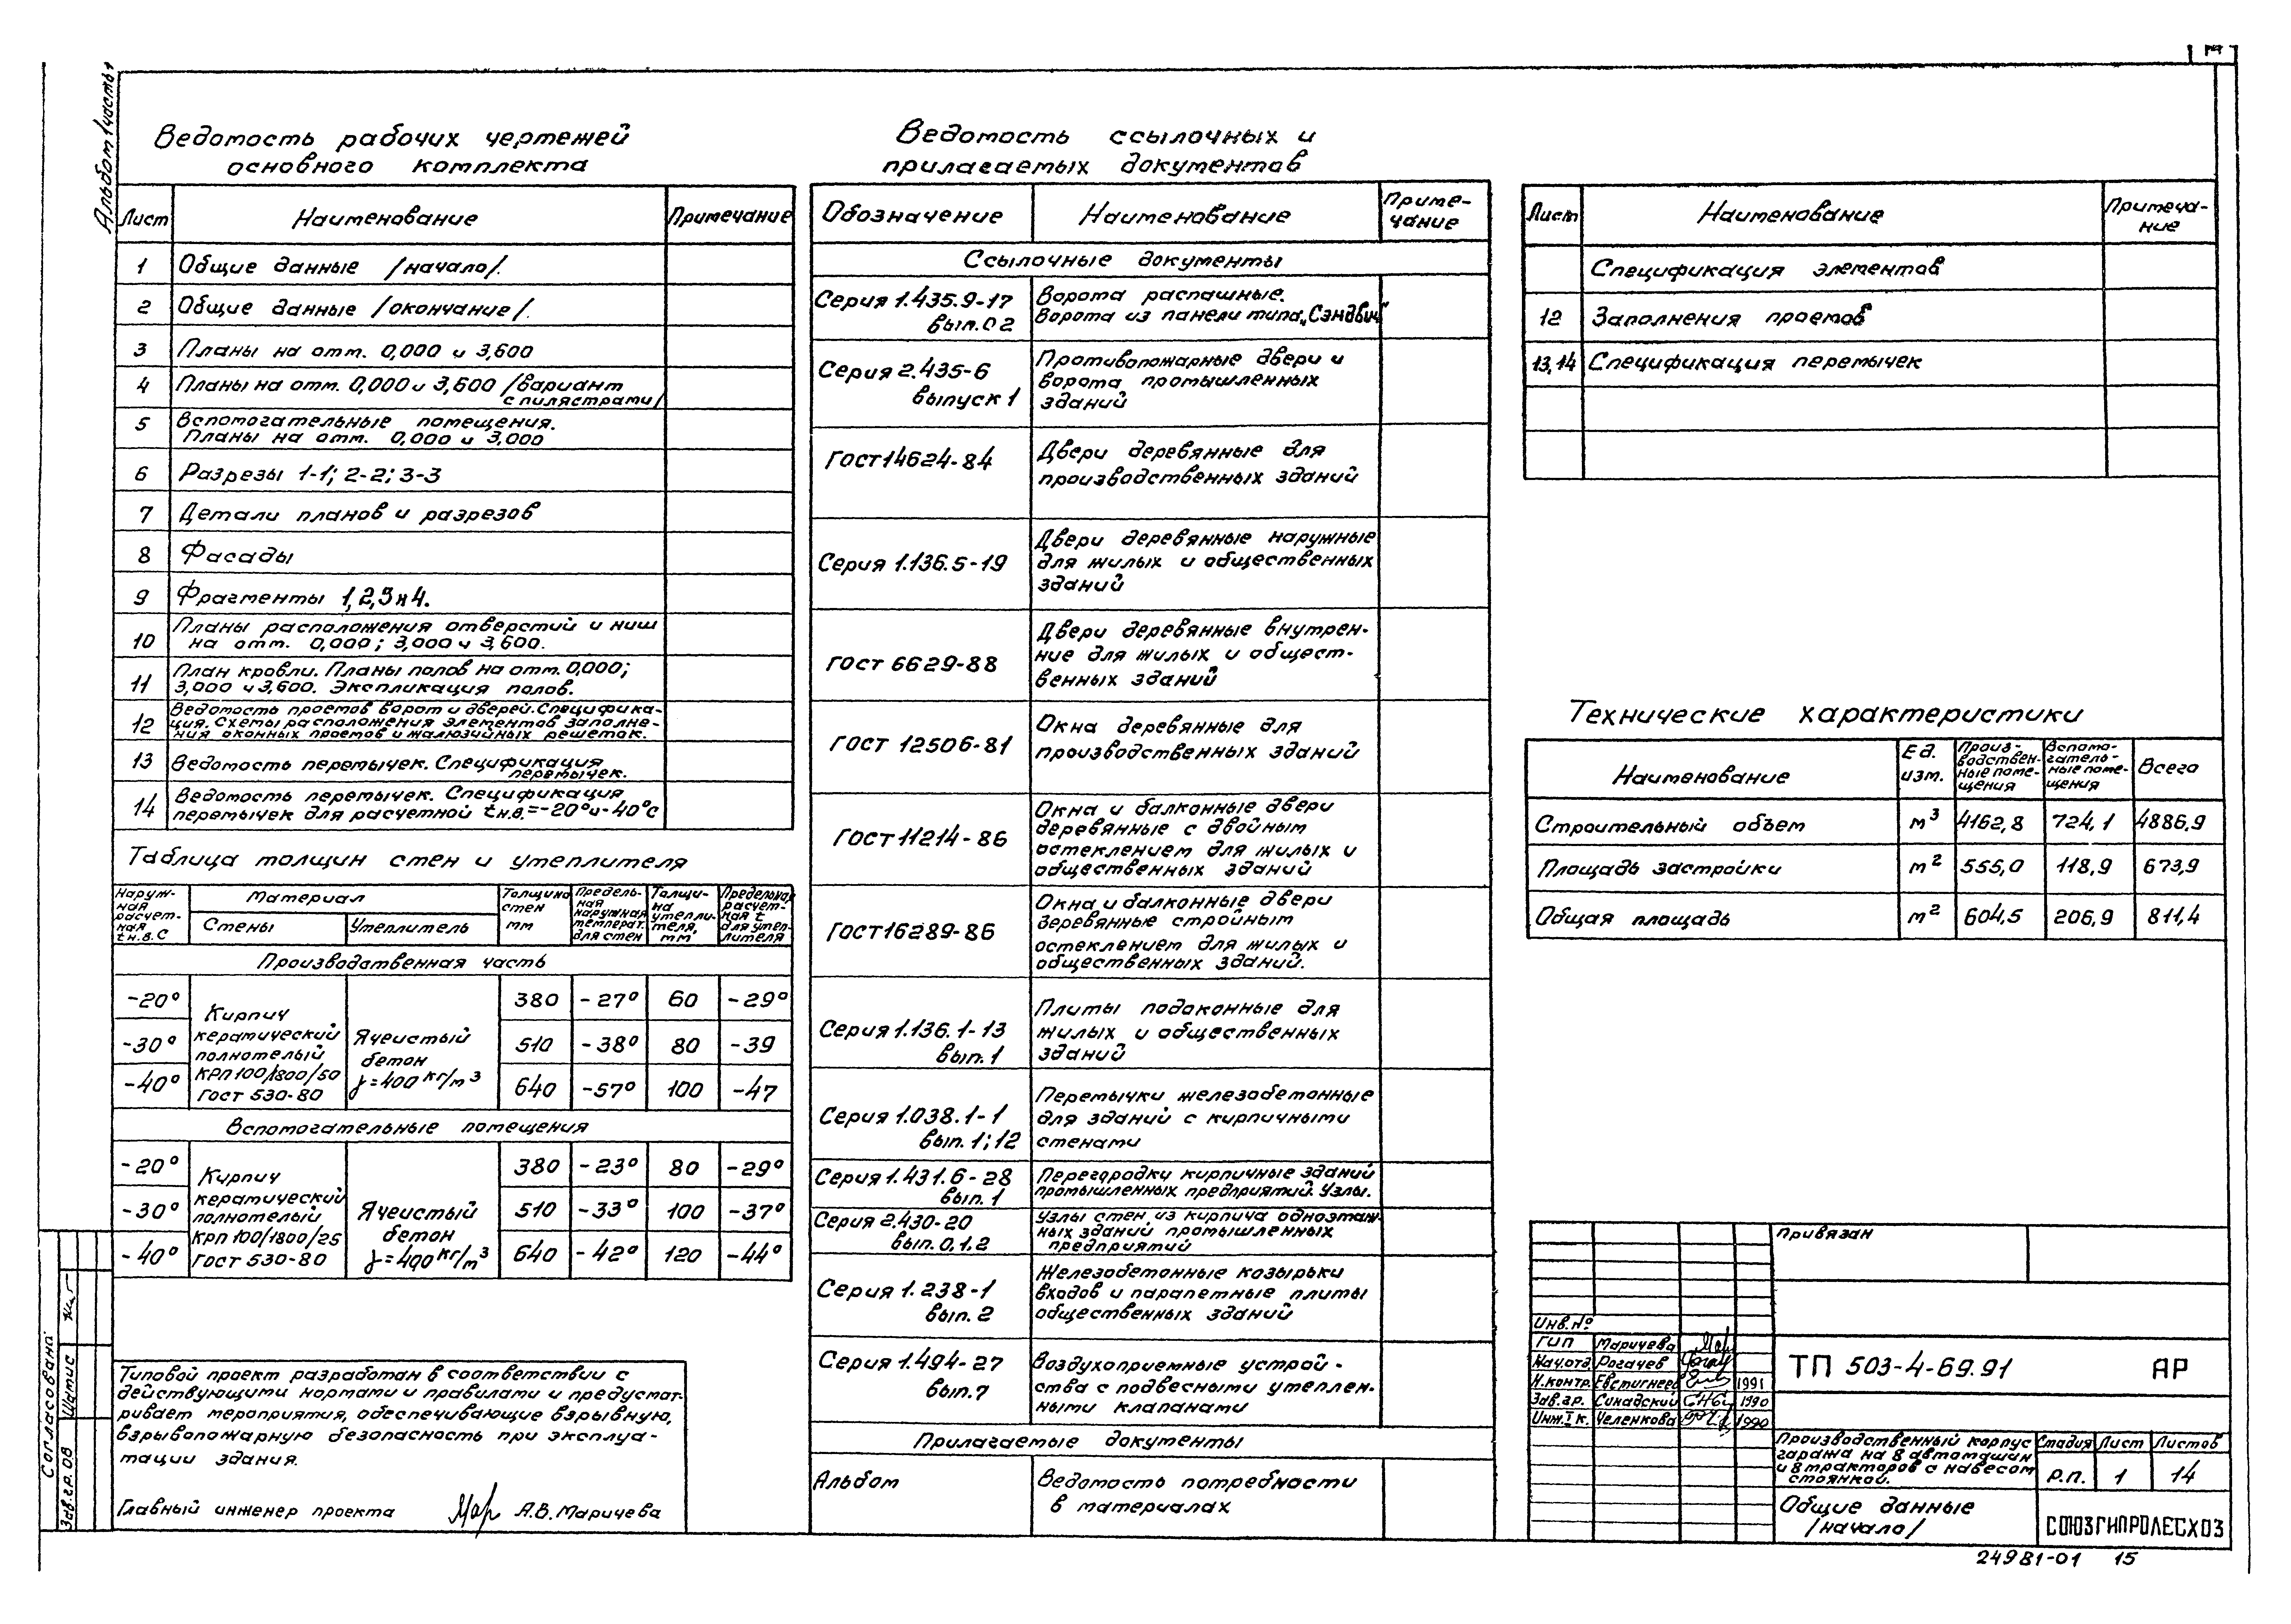 14
Альбом 1 часть 1
Ведомость рабочих чертежей
основного комплекта
Лист Наименование Примечание
1 Общие данные /начало/.
2 Общие данные /окончание/.
3 Планы на отм. 0,000 и 3,600
4 Планы на отм. 0,000 и 3,600 /вариант
с пилястрами/
5 Вспомогательные помещения.
Планы на отм. 0,000 и 3,000
6 Разрезы 1-1; 2-2; 3-3
7 Детали планов и разрезов
8 Фасады
9 Фрагменты 1,2,3 и 4.
10 Планы расположения отверстий и ниш
на отм. 0,000; 3,000 и 3,600.
11 План кровли. Планы полов на отм. 0,000;
3,000 и 3,600. Экспликация полов.
12 Ведомость проемов ворот и дверей. Специфика-
ция. Схемы расположения элементов заполне-
ния оконных проемов и жалюзийных решеток.
13 Ведомость перемычек. Спецификация
перемычек.
14 Ведомость перемычек. Спецификация
перемычек для расчетной tн.в.=-20° и -40°С
Таблица толщин стен и утеплителя
Наруж-
ная
расчет-
ная
tн.в. С
Материал
Стены Утеплитель
Толщина
стен
мм
Предель-
ная
наружная
температ.
для стен
Толщи-
на
утепли-
теля,
мм
Предельная
расчет-
ная t
для утеп-
лителя
Производственная часть
-20° 380 -27° 60 -29°
-30° 510 -38° 80 -39
-40° 640 -57° 100 -47
Кирпич
керамический
полнотелый
КРП 100/1800/50
ГОСТ 530-80
Ячеистый
бетон
γ=400 кг/м³
Вспомогательные помещения
-20° 380 -23° 80 -29°
-30° 510 -33° 100 -37°
-40° 640 -42° 120 -44°
Кирпич
керамический
полнотелый
КРП 100/1800/25
ГОСТ 530-80
Ячеистый
бетон
γ=400 кг/м³
Типовой проект разработан в соответствии с
действующими нормами и правилами и предусмат-
ривает мероприятия, обеспечивающие взрывную,
взрывопожарную безопасность при эксплуа-
тации здания.
Главный инженер проекта А.В. Маричева
Согласовано:
Зав.гр. ОВ Шатис
Ведомость ссылочных и
прилагаемых документов
Обозначение Наименование Приме-
чание
Ссылочные документы
Серия 1.435.9-17
вып. 0 2
Ворота распашные.
Ворота из панели типа „Сэндвич"
Серия 2.435-6
выпуск 1
Противопожарные двери и
ворота промышленных
зданий
ГОСТ 14624-84 Двери деревянные для
производственных зданий
Серия 1.136.5-19
Двери деревянные наружные
для жилых и общественных
зданий
ГОСТ 6629-88
Двери деревянные внутрен-
ние для жилых и общест-
венных зданий
ГОСТ 12506-81
Окна деревянные для
производственных зданий
ГОСТ 11214-86
Окна и балконные двери
деревянные с двойным
остеклением для жилых и
общественных зданий
ГОСТ 16289-86
Окна и балконные двери
деревянные с тройным
остеклением для жилых и
общественных зданий.
Серия 1.136.1-13
вып. 1
Плиты подоконные для
жилых и общественных
зданий
Серия 1.038.1-1
вып. 1; 12
Перемычки железобетонные
для зданий с кирпичными
стенами
Серия 1.431.6-28
вып. 1
Перегородки кирпичные зданий
промышленных предприятий. Узлы.
Серия 2.430-20
вып. 0.1.2
Узлы стен из кирпича одноэтаж-
ных зданий промышленных
предприятий
Серия 1.238-1
вып. 2
Железобетонные козырьки
входов и парапетные плиты
общественных зданий
Серия 1.494-27
вып. 7
Воздухоприемные устрой-
ства с подвесными утеплен-
ными клапанами
Прилагаемые документы
Альбом
Ведомость потребности
в материалах
Лист Наименование Примеча-
ние
Спецификация элементов
12 Заполнения проемов
13,14 Спецификация перемычек
Технические характеристики
Наименование
Ед.
изм.
Произ-
водствен-
ные поме-
щения
Вспомо-
гатель-
ные поме-
щения
Всего
Строительный объем м³ 4162,8 724,1 4886,9
Площадь застройки м² 555,0 118,9 673,9
Общая площадь м² 604,5 206,9 811,4
Привязан
Инв.№
ГИП Маричева
Нач.отд. Рогачев
Н.контр. Евстигнеев 1991
Зав.гр. Синадский 1990
Инж.I к. Челенкова 1990
ТП 503-4-69.91 АР
Производственный корпус
гаража на 8 автомашин
и 8 тракторов с навесом
стоянкой.
Стадия Лист Листов
Р.П. 1 14
Общие данные
/начало/
СОЮЗГИПРОЛЕСХОЗ
24981-01 15